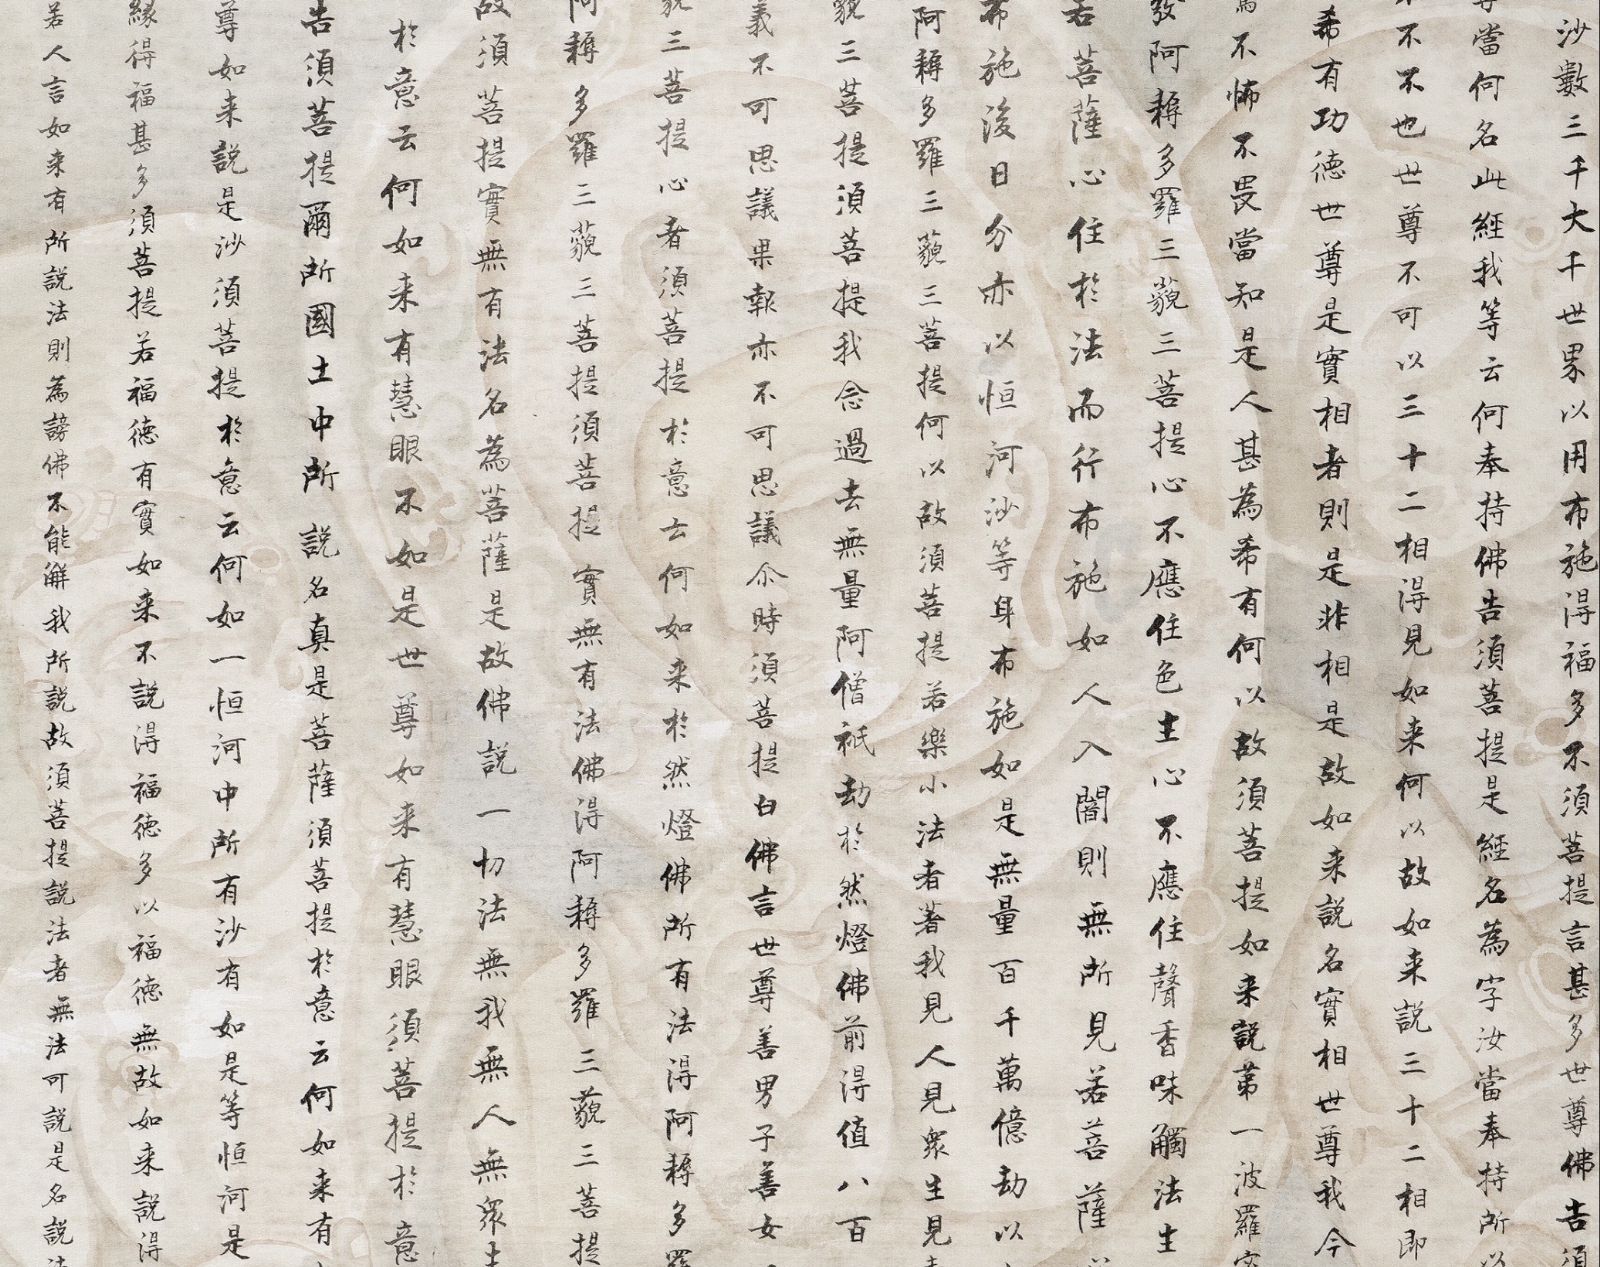 沙數三千大千世界以用布施得福多不須菩提言甚多世尊佛告須
當何名此經我等云何奉持佛告須菩提是經名為字汝當奉持所以
不不也世尊不可以三十二相得見如来何以故如来説三十二相即
希有功徳世尊是實相者則是非相是故如来説名實相世尊我今
不怖不畏當知是人甚為希有何以故須菩提如来説第一波羅
發阿耨多羅三藐三菩提心不應住色生心不應住聲香味觸法生
若菩薩心住於法而行布施如人入闇則無所見若菩薩
布施後日分亦以恒河沙等身布施如是無量百千萬億劫以
阿耨多羅三藐三菩提何以故須菩提若樂小法者著我見人見衆生見
藐三菩提須菩提我念過去無量阿僧祇劫於然燈佛前得值八百
義不可思議果報亦不可思議尒時須菩提白佛言世尊善男子善女
藐三菩提心者須菩提於意云何如来於然燈佛所有法得阿耨多羅
阿耨多羅三藐三菩提須菩提實無有法佛得阿耨多羅三藐三菩提
故須菩提實無有法名為菩薩是故佛説一切法無我無人無衆生
於意云何如来有慧眼不如是世尊如来有慧眼須菩提於意
告須菩提爾所國土中所説名真是菩薩須菩提於意云何如来有
尊如来説是沙須菩提於意云何如一恒河中所有沙有如是等恒河是
緣得福甚多須菩提若福徳有實如来不説得福徳多以福徳無故如来説得
若人言如来有所説法則為謗佛不能解我所説故須菩提説法者無法可説是名説法